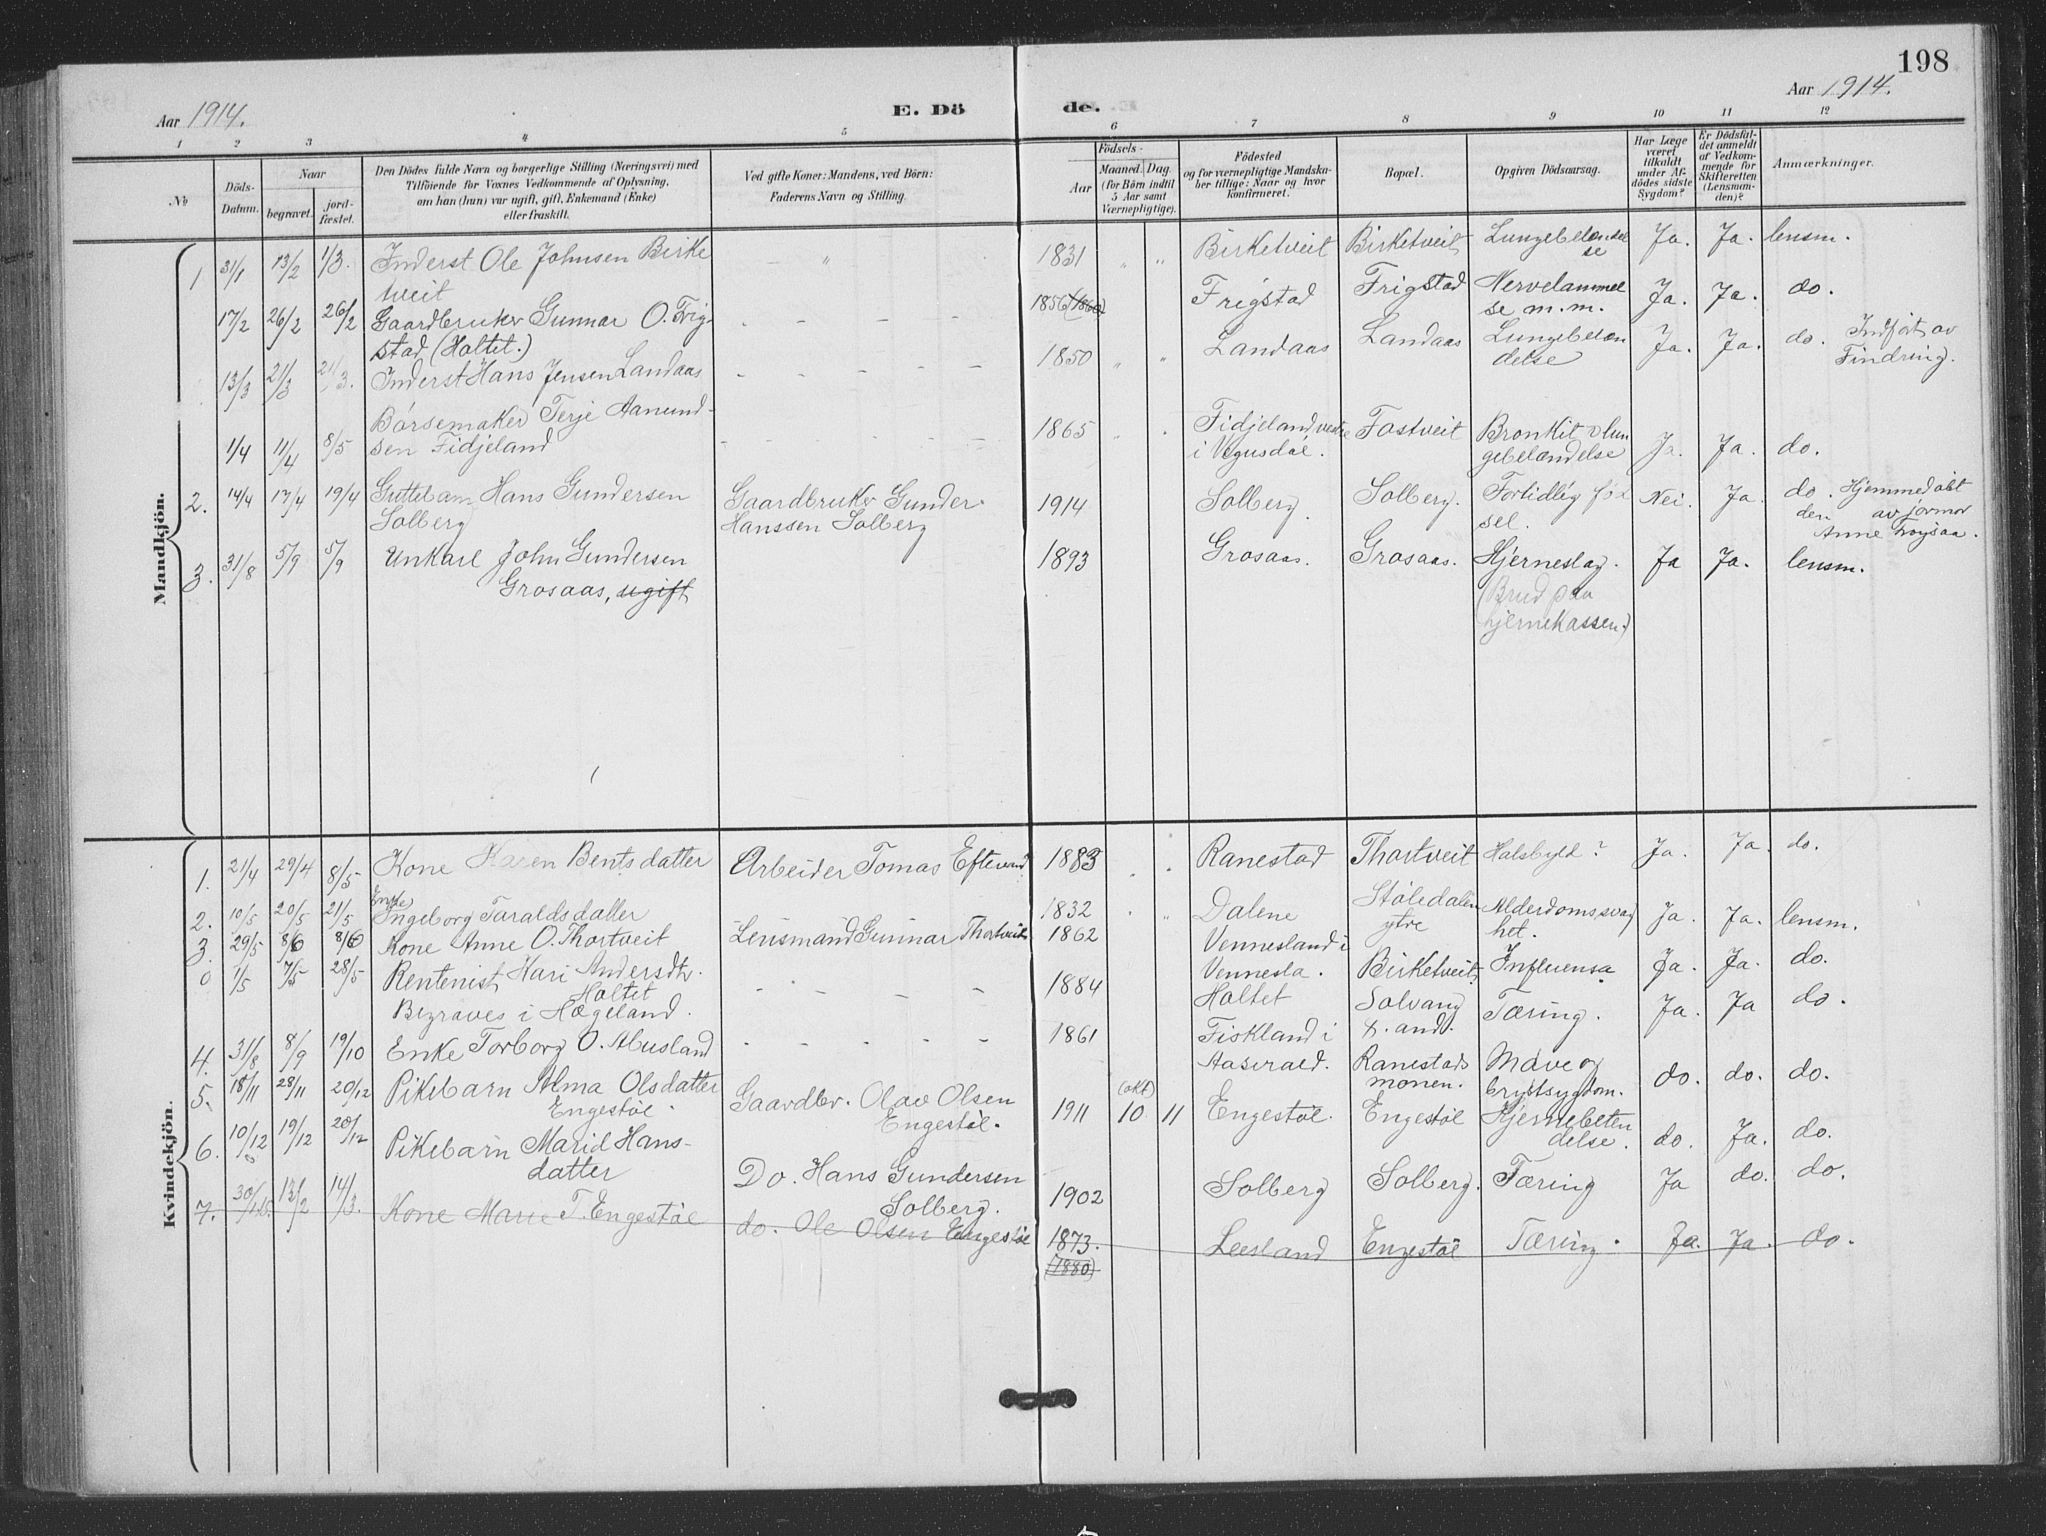 198
Aar 1914.
E. Dö de.
Aar 1914.
1 2 3 4 5 6 7 8 9 10 11 12
№
Döds-Datum.
Naar
begravet.
jord-fæstet.
Den Dödes fulde Navn og borgerlige Stilling (Næringsvei) med
Tilföiende för Voxnes Vedkommende af Oplysning,
om han (hun) var ugift, gift, Enkemand (Enke)
eller fraskilt.
Ved gifte Koner: Mandens, ved Börn:
Faderens Navn og Stilling.
Födsels-
Aar
Maaned. Dag.
(for Börn indtil
5 Aar samt
Værnepligtige).
Födested
og for værnepligtige Mandska-
ber tillige: Naar og hvor
konfirmeret.
Bopæl.
Opgiven Dödsaarsag.
Har Læge
været
tilkaldt
under Af-
dödes sidste
Sygdom?
Er Dödsfal-
det anmeldt
af Vedkom-
mende for
Skifteretten
(Lensman-
den)?
Anmærkninger.
Mandkjön.
1 31/1 13/2 1/3. Inderst Ole Johnsen Birke
tveit
" 1831 " " Birketveit Birketveit Lungebetændel
se Ja. Ja. lensm.
17/2 26/2 26/2 Gaardbruker Gunnar O. Frig-
stad (Holtet.)
1856 (1860) Frigstad Frigstad Nervelammel
se m.m. Ja. Ja. do.
13/3 21/3 21/3. Inderst Hans Jensen Landaas
1850 " " Landaas Landaas Lungebetæn
delse Ja. Ja. do. Indført av
Findring.
1/4 11/4 8/5 Børsemaker Terje Aanund-
sen Fidjeland
1865 Fidjeland vestre
i Vegusdal. Fostveit Bronkit o lun
gebetændelse Ja. Ja. do.
2. 14/4 17/4 19/4 Guttebarn Hans Gundersen
Solberg
Gaardbruker Gunder
Hanssen Solberg
1914 Solberg. Solberg. Fortidlig fød
sel. Nei. Ja do. Hjemmedøbt
den av jormor
Anne Troysaa.
3. 31/8 5/9 5/9 Unkarl John Gundersen
Grosaas, ugift
1893 Grosaas. Grosaas. Hjerneslag.
(Brud paa
hjernekassen.)
Ja Ja. lensm.
Kvindekjön.
1. 21/4 29/4 8/5 Kone Karen Bentsdatter Arbeider Tomas Eftevand 1883 Ranestad Thortveit Halsbyld? Ja. Ja. do.
2. 10/5 20/5 21/5 Enke
Ingeborg Taraldsdatter 1832 Dalene Støledalen
ytre Alderdomssvag
het. Ja. Ja. lensm.
3. 29/5 8/6 8/6 Kone Anne O. Thortveit Lensmand Gunnar Thortveit 1862 Vennesland i
Vennesla. Birketveit Influensa Ja. Ja. do.
0 1/5 7/5 28/5 Rentenist Kari Andersdtr.
Holtet
Begraves i Hægeland.
1884 Holtet Solvang
Tæring. Ja. Ja do.
4. 31/8 8/9 19/10 Enke Torborg O. Abusland 1861 Fiskland i
Aaserald. Ranestads
monen. Mave og
brystsygdom. do. do. do.
5. 18/11 28/11 20/12 Pikebarn Alma Olsdatter
Engestøl.
Gaardbr. Olav Olsen
Engestøl.
1911 (okt) 10 11 Engestøl. Engestøl Hjernebeten
delse. do. Ja. do.
6. 10/12 19/12 20/12 Pikebarn Marid Hans-
datter
Do. Hans Gundersen
Solberg.
1902 Solberg Solberg. Tæring Ja do. do.
7. 13/2 14/3. Kone Marie T. Engestøl do. Ole Olsen Engestøl 1873.
(1880) Leesland Engestøl Tæring. Ja. Ja. do.